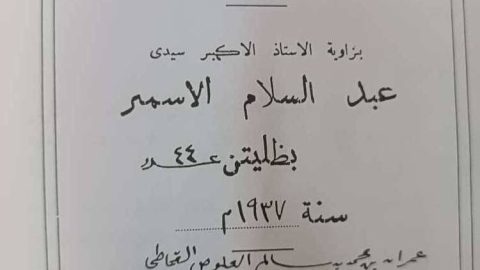 بزاوية الاستاذ الاكبر سيدى
عبد السلام الاسمر
بظليتن عدد ٤٤
سنة ١٩٣٧م
عمران بن محمد بن سالم العلوص القحاطي